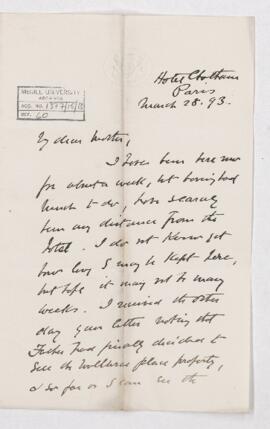 McGILL UNIVERSITY
ARCHIVES
ACC. NO. 1377/
REF. 60
Hotel Chatham
Paris
March 28. 93.
My dear Mother,
I have been here now
for about a week, but having had
much to do, have scarcely
been any distance from the
Hotel. I do not know yet
how long I may be kept here,
but hope it may not be many
weeks. I received the other
day your letter noting that
Father had finally decided to
sell the place property,
& so far as I can see the